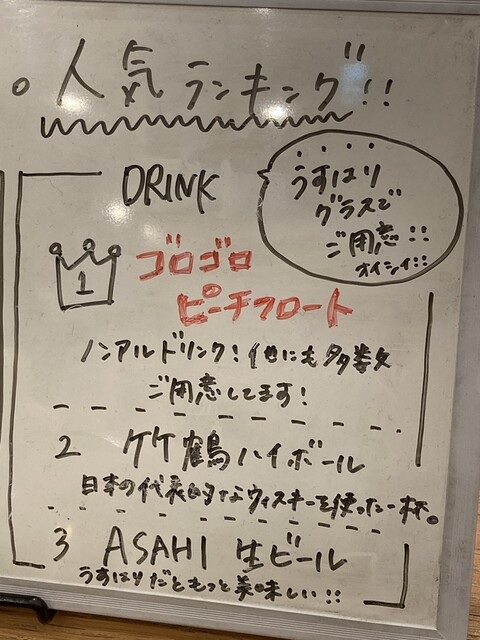 人気ランキング!!
DRINK
うすはり
グラスで
ご用意!!
オイシイ!!
1
ゴロゴロ
ピーチフロート
ノンアルドリンク!他にも多数
ご用意してます!
2 竹鶴ハイボール
日本の代表的なウィスキーを使った一杯。
3 ASAHI 生ビール
うすはりだともっと美味しい!!